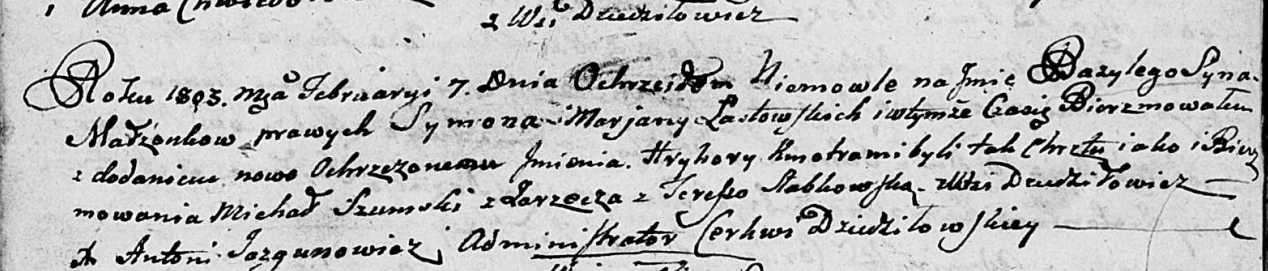 i Anna
z Wsi Dziedziłowicz
Roku 1803. Mca Februaryi 7. Dnia Ochrzciłem Niemowle na Jmię Bazylego Syna
Małżonkow prawych Symona i Marjany Lastowskich i wtymże Czasię Bierzmowałem
z dodaniem nowo Ochrzczonemu Jmienia. Hryhory Kmotrami byli tak Chrztu iako i Bierz
mowania Michał Szumski z Zarzecza z Teressą Słabkowską z Wsi Dziedziłowicz
X Antoni Jazgunowicz Administrator Cerkwi Dziedziłowskiey